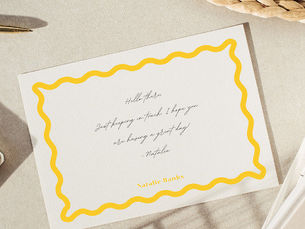 Hello there,
Just keeping in touch. I hope you
are having a great day!
- Natalie
Natalie Banks